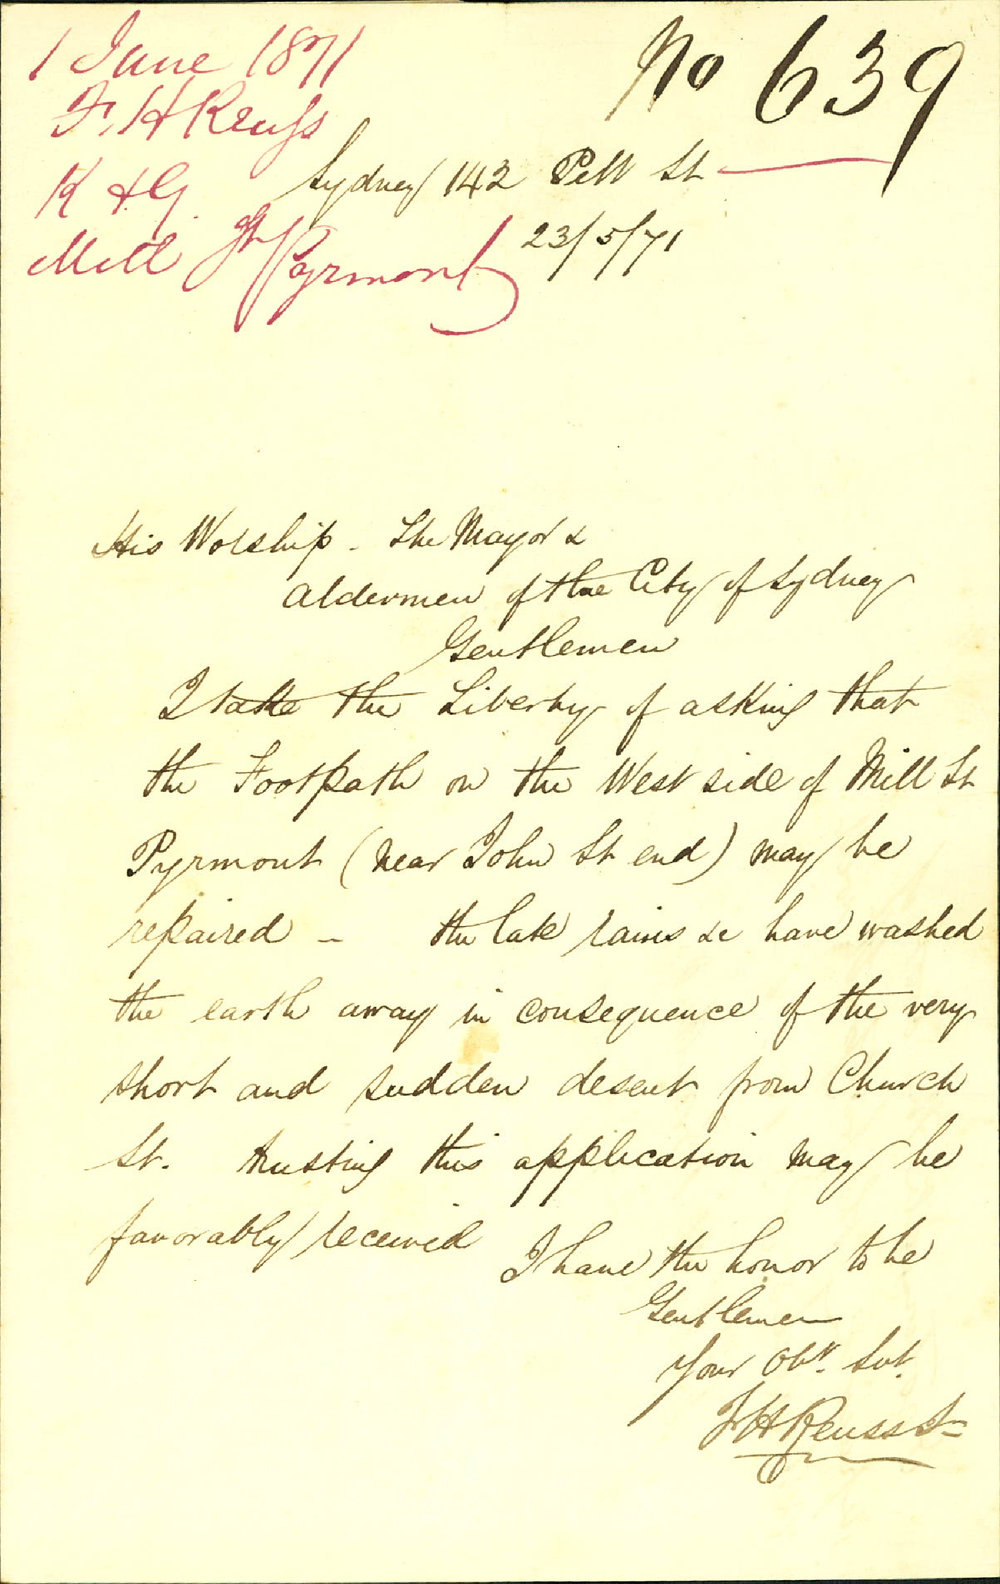 1 June 1871
No 639
F. H Reuss
Sydney 142 Pitt St
K & G.
23/5/71
Mill St Pyrmont
His Worship - The Mayor &
Aldermen of the City of Sydney
Gentlemen
I take the Liberty of asking that
the Footpath on the West side of Mill St
Pyrmont (near John St end) may be
repaired - the late rains &c have washed
the earth away in consequence of the very
short and sudden desent from Church
St. trusting this application may be
favorably received
I have the honor to be
Gentlemen
Your Obt. Svt.
F H Reuss Sn